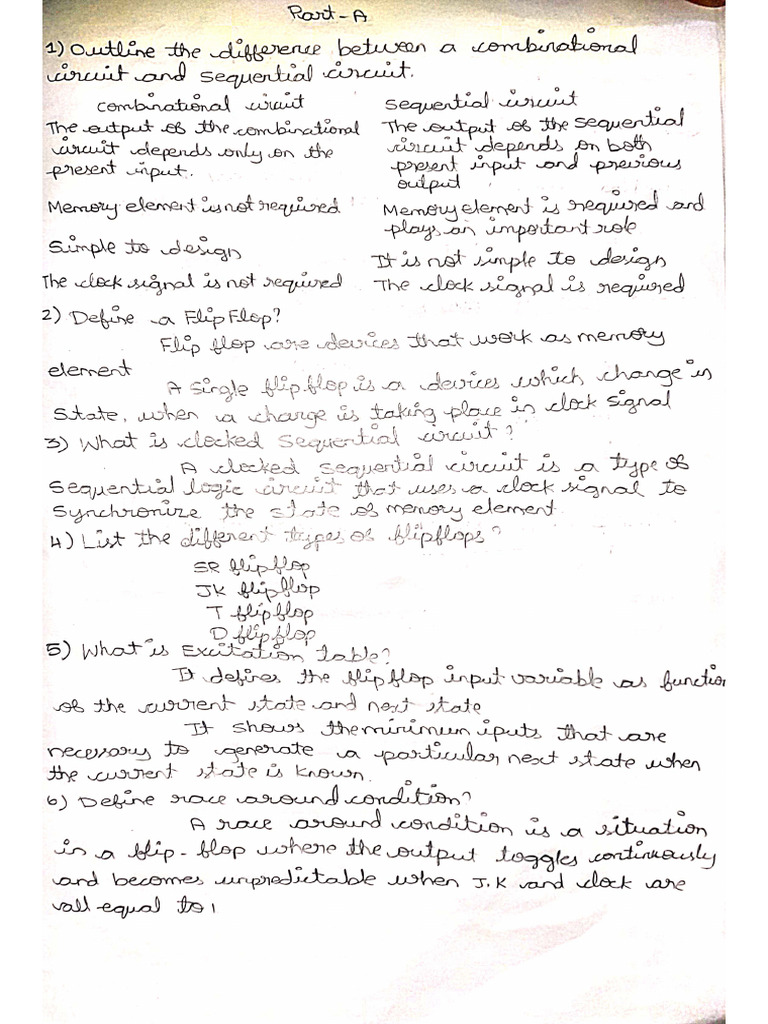 Part-A
1) Outline the difference between a combinational
circuit and sequential circuit.
combinational circuit
The output of the combinational
circuit depends only on the
present input.
Memory element is not required
Simple to design
The clock signal is not required
Sequential circuit
The output of the sequential
circuit depends on both
present input and previous
output
Memory element is required and
plays an important role
It is not simple to design
The clock signal is required
2) Define a FlipFlop?
Flip flop are devices that work as memory
element
A single flipflop is a devices which change in
State, when a change is taking place in clock signal
3) What is clocked sequential circuit?
A clocked sequential circuit is a type of
sequential logic circuit that uses a clock signal to
synchronize the state of memory element
4) List the different types of flipflops?
SR flipflop
JK flipflop
T flipflop
D flipflop
5) What is Excitation table?
It defines the flipflop input variable as function
of the current state and next state
It shows the minimum iputs that are
necessary to generate a particular next state when
the current state is known.
6) Define race around condition?
A race around condition is a situation
in a flip-flop where the output toggles continuously
and becomes unpredictable when J.K and clock are
all equal to 1